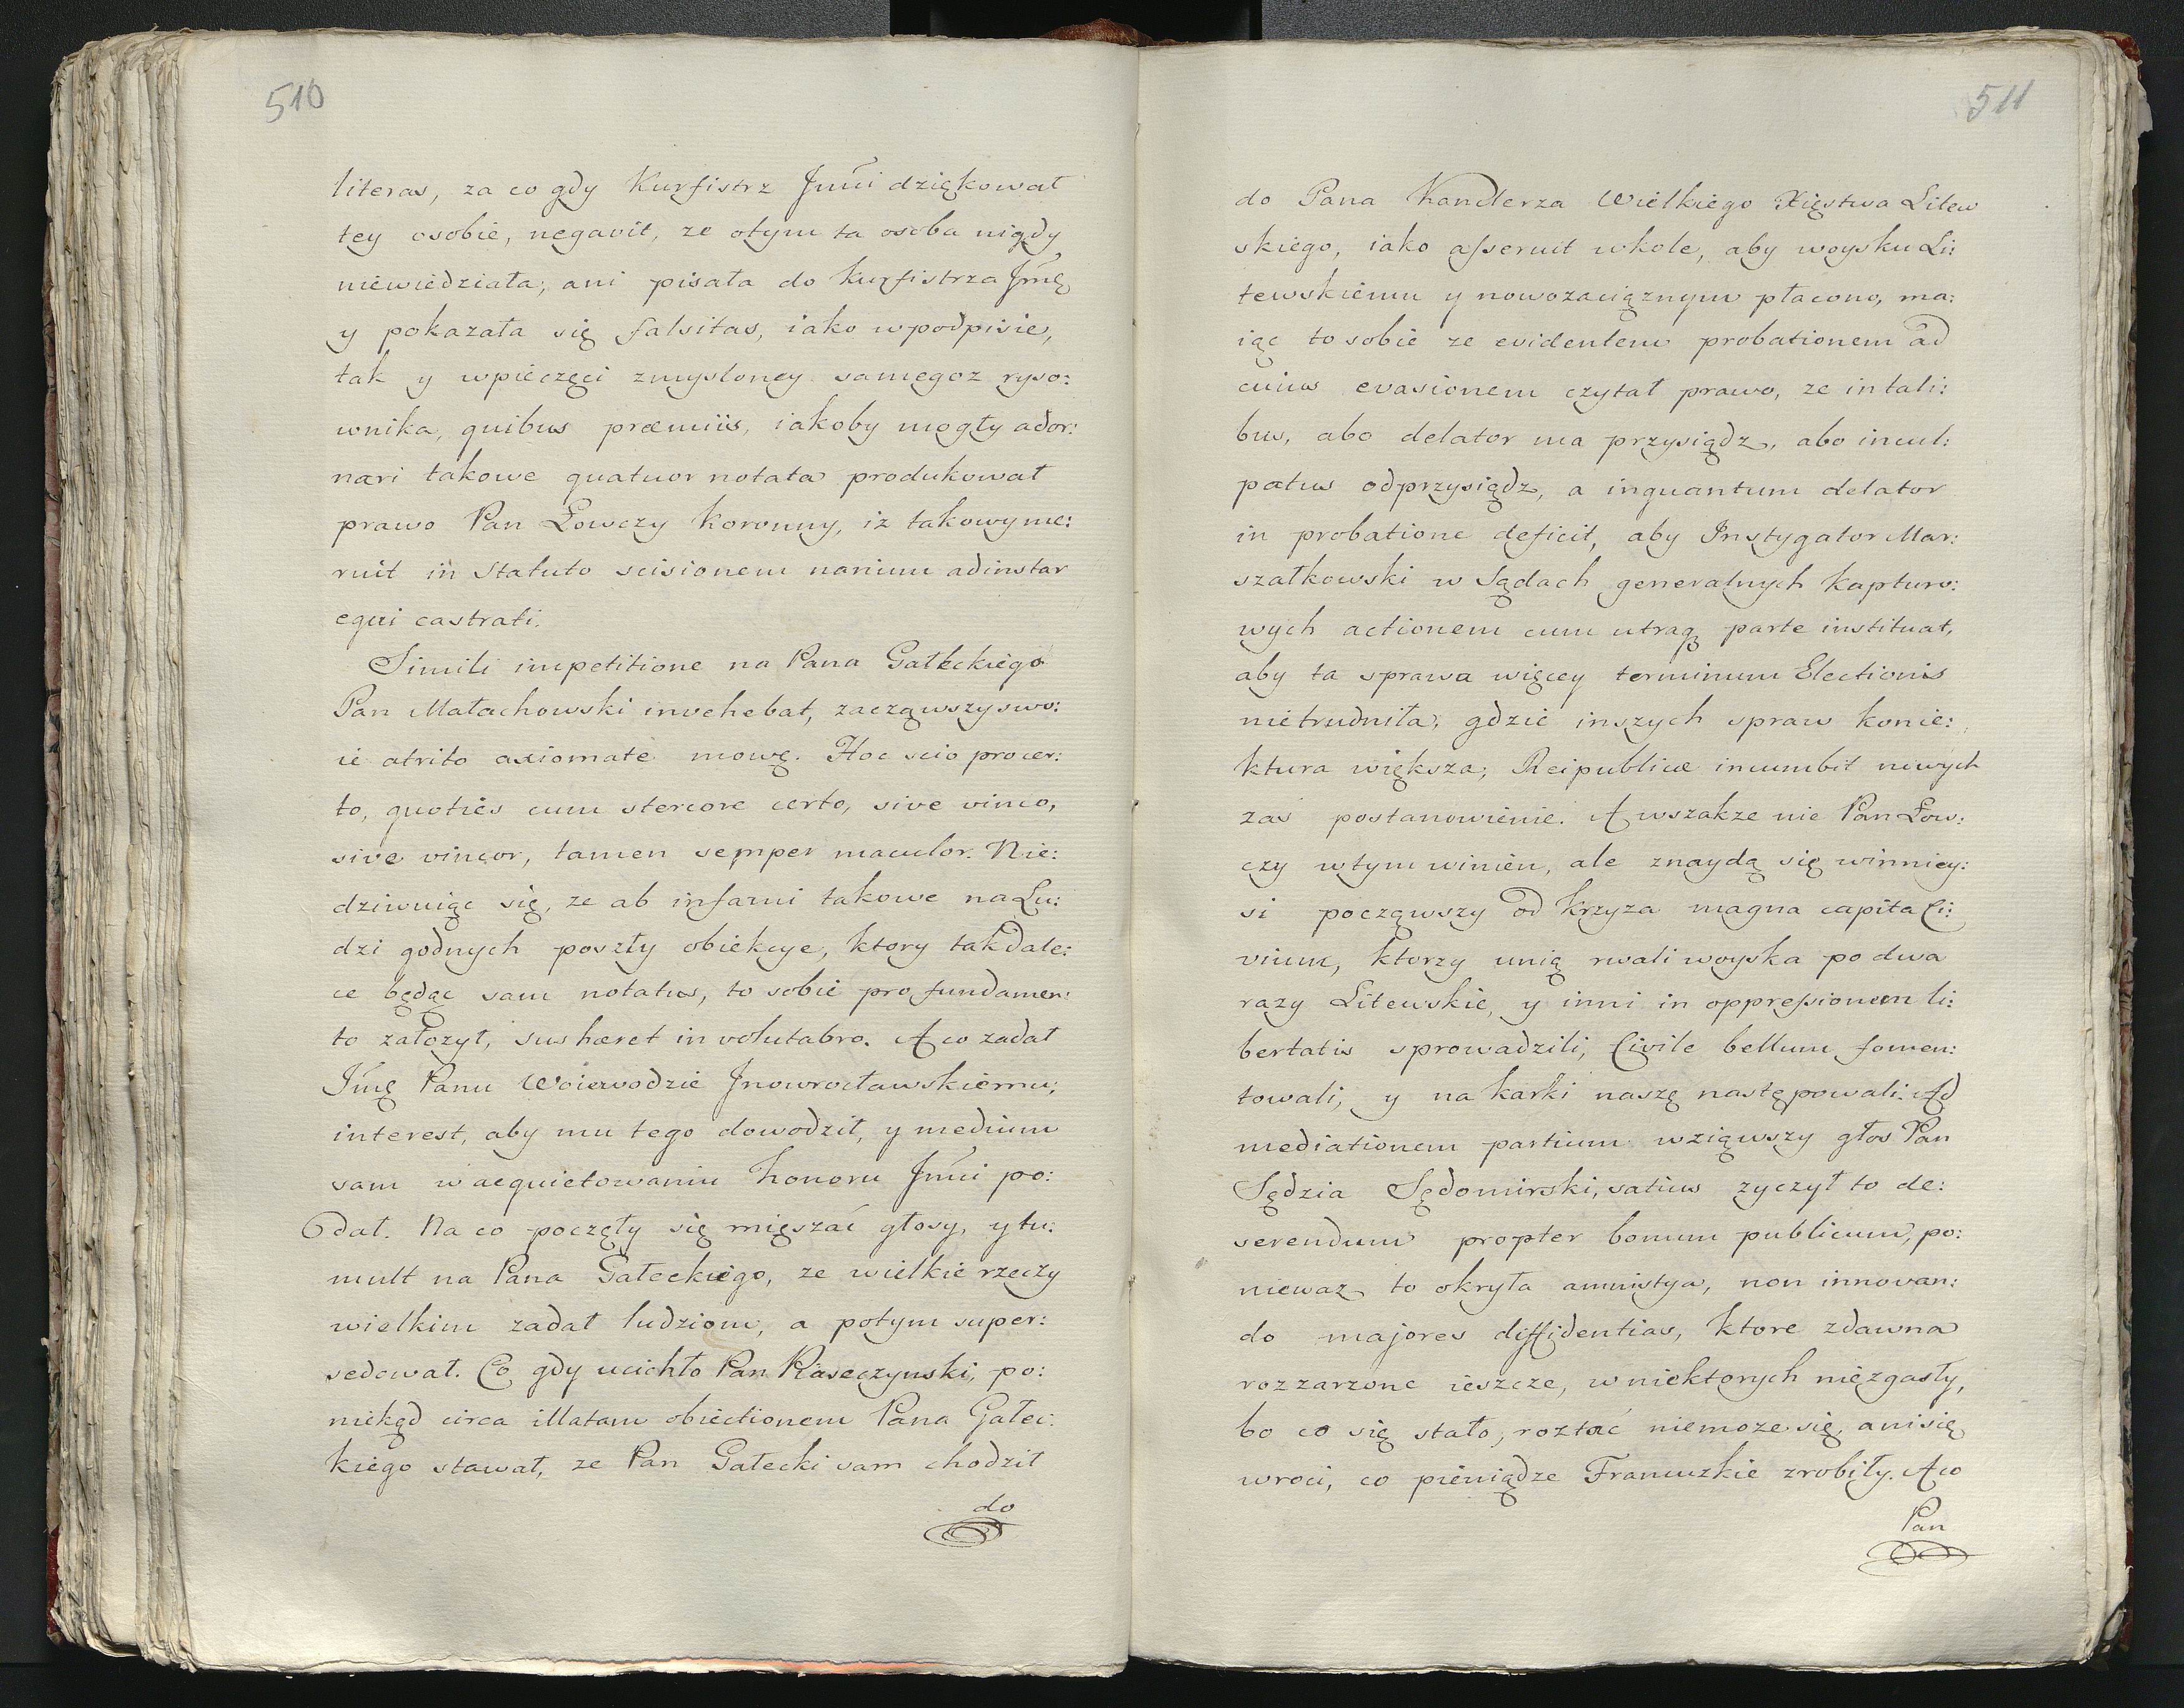 510
literas, za co gdy Kurfistrz Jmći dziękował
tey osobie, negavit, ze otym ta osoba nigdy
niewiedziała, ani pisała do Kurfistrza Jmę
y pokazała się falsitas, iako wpodpisie,
tak y wpieczęci zmysloney samegoz ryso:
wnika, quibus præmiis, iakoby mogły ador:
nari takowe quatuor notata produkował
prawo Pan Łowczy Koronny, iz takowy me:
ruit in Statuto scisionem narium adinstar
equi castrati.
Simili impetitione na Pana Gałeckiego
Pan Małachowski invehebat, zacząwszy swo:
ie atrito axiomate mowę. Hoc scio procer:
to, quoties cum stercore certo, sive vinco,
sive vincor, tamen semper maculor. Nie:
dziwuiąc się, ze ab infami takowe na Lu:
dzi godnych poszły obiekcye, ktory takdale:
ce będąc sam notatus, to sobie pro fundamen:
to załozył, sus hæret in volutabro. A co zadał
Jmę Panu Woiewodzie Jnowrocławskiemu,
interest, aby mu tego dowodził, y medium
sam w acquietowaniu honoru Jmći po:
dał. Na co poczęły się mięszać głosy, y tu:
mult na Pana Gałeckiego, ze wielkie rzeczy
wielkim zadał ludziom, a potym super:
sedował. Co gdy ucichło Pan Raseczynski, po:
niekąd circa illatam obiectionem Pana Gałec:
kiego stawał, ze Pan Gałecki sam chodził
do
511
do Pana Kanclerza Wielkiego Xięstwa Litew
skiego, iako asseruit wkole, aby woysku Li:
tewskiemu y nowozaciąznym płacono, ma:
iąc to sobie ze evidentem probationem ad
cuius evasionem czytał prawo, ze in tali:
bus, abo delator ma przysiądz, abo incul:
patus odprzysiądz, a inquantum delator
in probatione deficit, aby Instygator Mar:
szałkowski w Sądach generalnych Kapturo:
wych actionem cum utraq parte instituat,
aby ta sprawa więcey terminum Electionis
nietrudniła, gdzie inszych spraw konie:
ktura większa, Reipublicæ incumbit nowych
zas postanowienie. A wszakze nie Pan Łow:
czy wtym winien, ale znaydą się winniey:
si począwszy od Krzyza magna capita Ci:
vium, ktorzy unią rwali woyska po dwa
razy Litewskie, y inni in oppressionem li:
bertatis sprowadzili, Civile bellum fomen:
towali, y na karki naszę następowali. Ad
mediationem partium wziąwszy głos Pan
Sędzia Sędomirski, satius zyczył to de:
serendum propter bonum publicum, po:
niewaz to okryła amnistya, non innovan:
do majores diffidentias, ktore zdawna
rozzarzone ieszcze, wniektorych niezgasły,
bo co się stało, roztać niemoze się, anisię
wroci, co pieniądze Francuzkie zrobiły. A co
Pan